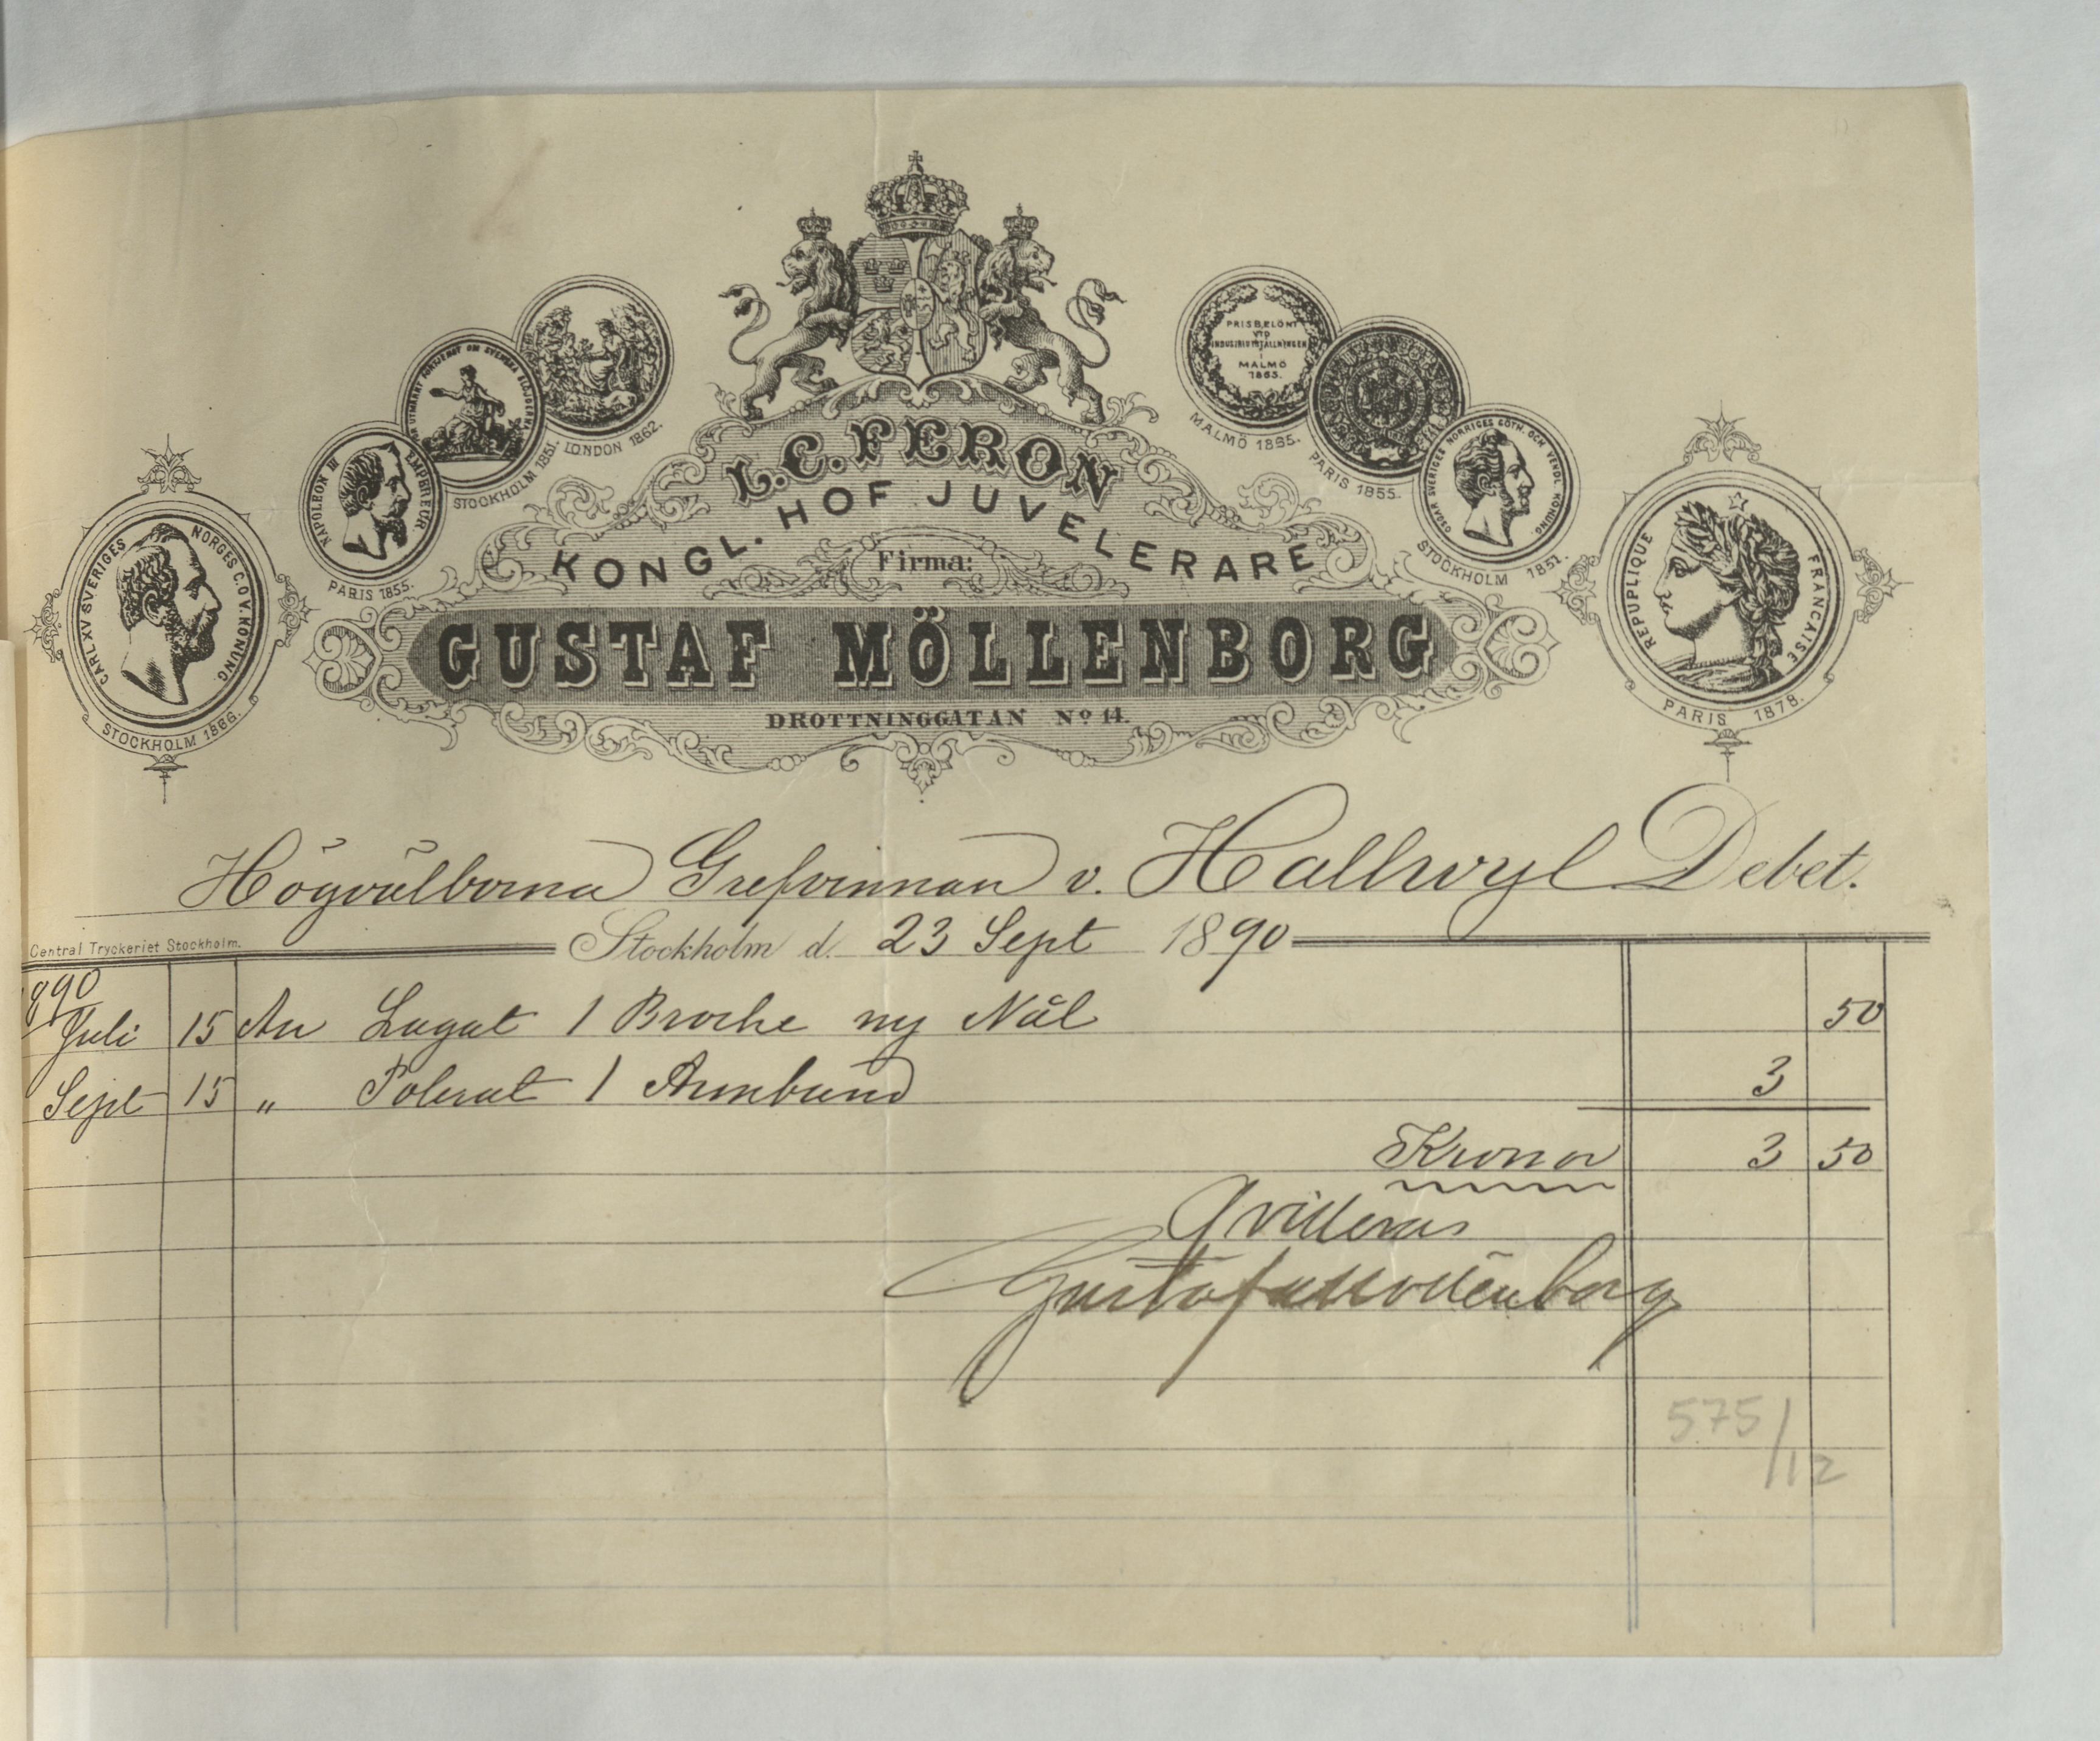 L. C. FERON
KONGL. HOF JUVELERARE
Firma:
GUSTAF MÖLLENBORG
DROTTNINGGATAN No 14.
CARL XV SVERIGES NORGES G. O V. KONUNG
STOCKHOLM 1866.
NAPOLEON III EMPEREUR
PARIS 1855.
FÖR UTMÄRKT FÖRTJENST OM SVENSKA SLÖJDERNA
STOCKHOLM 1851.
LONDON 1862.
PRISBELÖNT
VID
INDUSTRIUTSTÄLLNINGEN
I
MALMÖ
1865.
MALMÖ 1865.
PARIS 1855.
OSCAR SVERIGES NORRIGES GÖTH. OCH VENDL. KONUNG
STOCKHOLM 1851.
REPUPLIQUE FRANCAISE
PARIS 1878.
Högvälborna Grefvinnan v. Hallwyl Debet.
Central Tryckeriet Stockholm.
Stockholm d. 23 Sept 1890
1890
Juli 15 An Lagat 1 Broche ny Nål 50
Sept 15 " Polerat 1 Armband 3
Kronor 3 50
Qvitteras
Gustaf Möllenborg
575/12